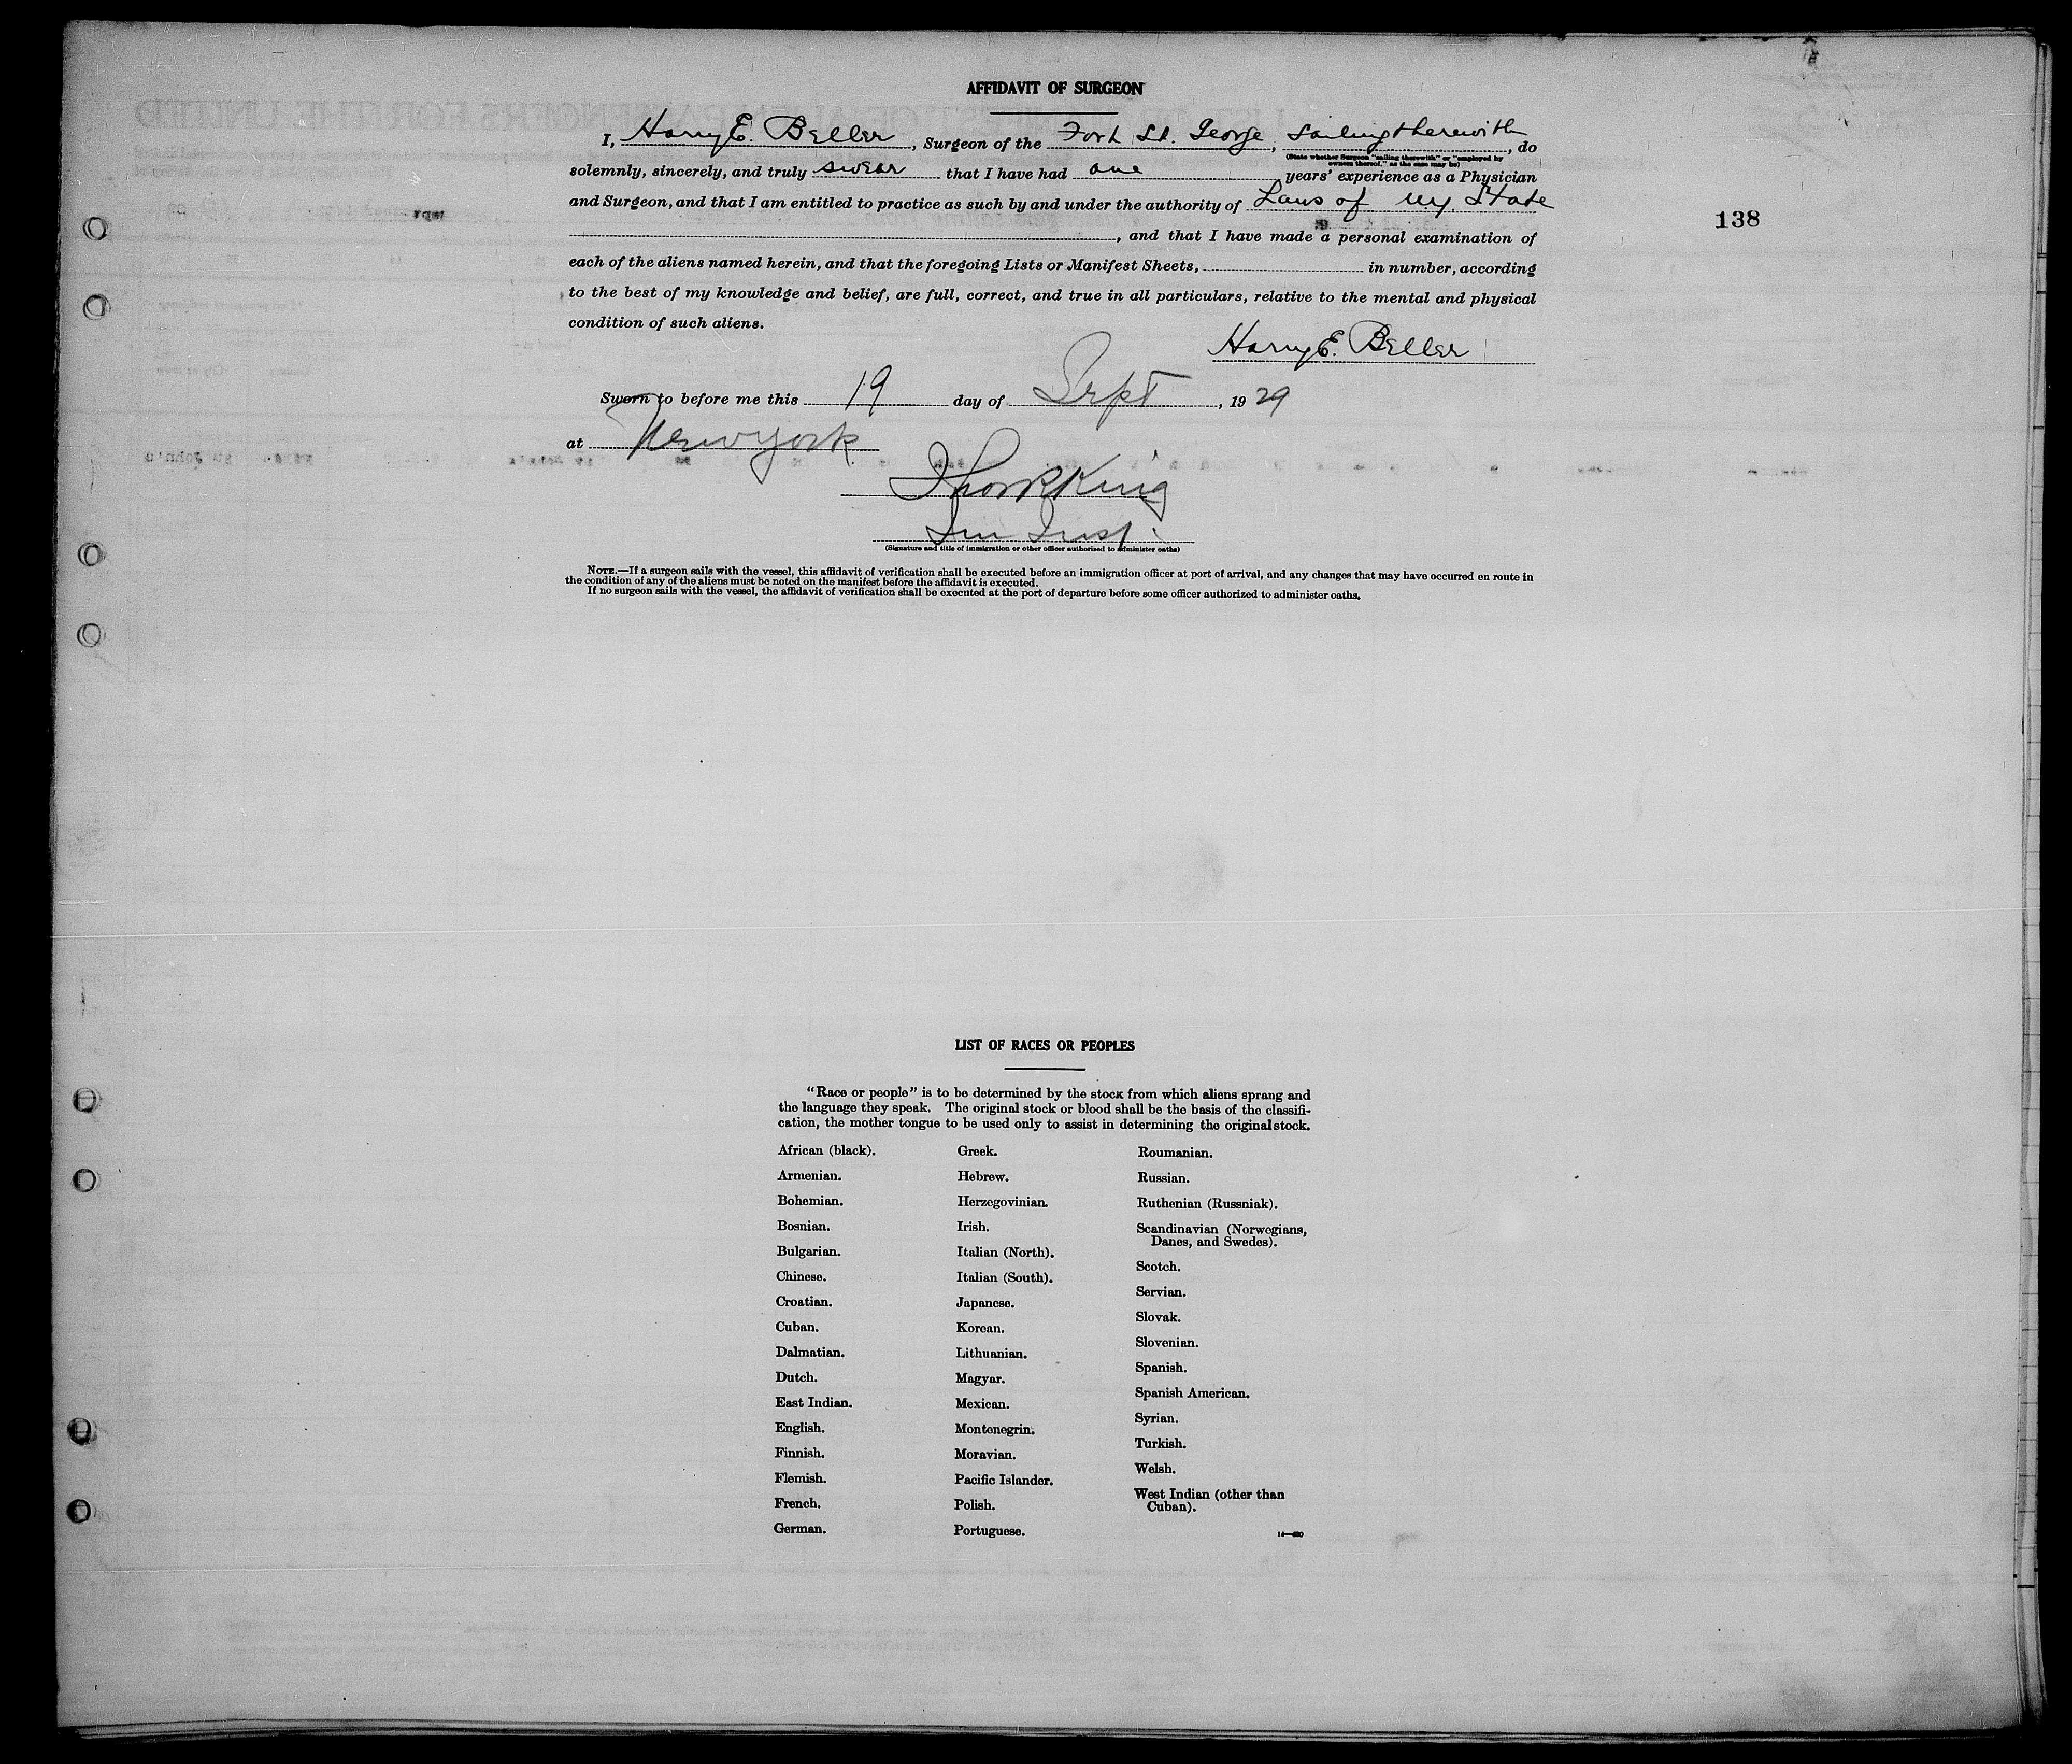 AFFIDAVIT OF SURGEON
I, Harry E. Beller, Surgeon of the Fort St. George, sailing therewith, do
(State whether Surgeon "sailing therewith" or "employed by
owners thereof," as the case may be)
solemnly, sincerely, and truly swear that I have had one years' experience as a Physician
and Surgeon, and that I am entitled to practice as such by and under the authority of Laws of N.Y. State
138
, and that I have made a personal examination of
each of the aliens named herein, and that the foregoing Lists or Manifest Sheets, in number, according
to the best of my knowledge and belief, are full, correct, and true in all particulars, relative to the mental and physical
condition of such aliens.
Harry E. Beller
Sworn to before me this 19 day of Sept, 1929
at New York
King
Im Insp.
(Signature and title of immigration or other officer authorized to administer oaths)
NOTE.—If a surgeon sails with the vessel, this affidavit of verification shall be executed before an immigration officer at port of arrival, and any changes that may have occurred en route in
the condition of any of the aliens must be noted on the manifest before the affidavit is executed.
If no surgeon sails with the vessel, the affidavit of verification shall be executed at the port of departure before some officer authorized to administer oaths.
LIST OF RACES OR PEOPLES
"Race or people" is to be determined by the stock from which aliens sprang and
the language they speak. The original stock or blood shall be the basis of the classifi-
cation, the mother tongue to be used only to assist in determining the original stock.
African (black).
Armenian.
Bohemian.
Bosnian.
Bulgarian.
Chinese.
Croatian.
Cuban.
Dalmatian.
Dutch.
East Indian.
English.
Finnish.
Flemish.
French.
German.
Greek.
Hebrew.
Herzegovinian.
Irish.
Italian (North).
Italian (South).
Japanese.
Korean.
Lithuanian.
Magyar.
Mexican.
Montenegrin.
Moravian.
Pacific Islander.
Polish.
Portuguese.
Roumanian.
Russian.
Ruthenian (Russniak).
Scandinavian (Norwegians,
Danes, and Swedes).
Scotch.
Servian.
Slovak.
Slovenian.
Spanish.
Spanish American.
Syrian.
Turkish.
Welsh.
West Indian (other than
Cuban).